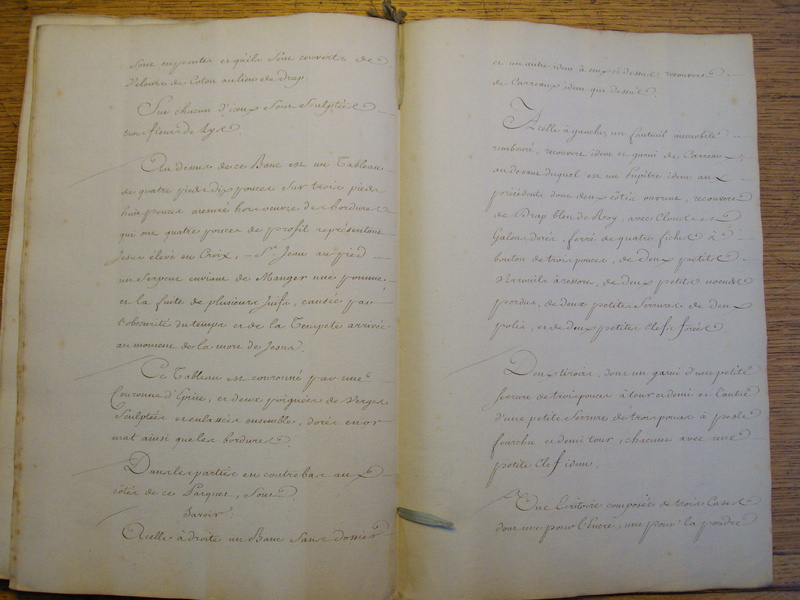 sont emportés et qu'ils sont couverts de
Velours de Coton au lieu de Drap.
Sur chacun d'iceux sont Sculptés
trois fleurs de Lys.
Au dessus de ce Banc est un Tableau
de quatre pieds dix pouces sur trois pieds
huit pouces mesuré hors œuvre des bordures
qui ont quatre pouces de profil représentant
Jesus élevé en Croix, St. Jean au pied
un Serpent enviant de Manger une pomme,
et la fuite de plusieurs Juifs, causée par
l'obscurité du temps et de la Tempete arrivée
au moment de la mort de Jesus.
Ce Tableau est couronné par une
Couronne d'Epine, et deux poignées de Verges
Sculptées et enlassées ensemble, dorée en or
mat ainsi que les bordures.
Dans les parties en contrebas aux
côtés de ce Parquet, Sont
Savoir.
A celle à droite un Banc sans dossier
et un autre idem à ceux ci dessus recouvert
de Carreaux idem que dessus.
A celle à gauche, un fauteuil immobile
rembouré, recouvert idem et garni de Carreau
au devant duquel est un Pupitre idem aux
précédents dont deux côtés ouvrent, recouvert
de Drap bleu de Roy, avec Clouds et
Galons dorés, ferré de quatre fiches à
bouton de trois pouces, de deux petits
Verrouils à ressort, de deux petits noeuds
perdus, de deux petites Serrures de deux
polis, et de deux petites Clefs forés
Deux tiroirs, dont un garni d'une petite
Serrure de trois pouces à tour et demi et l'autre
d'une petite Serrure de trois pouces à pesle
fourchu et demi tour, chacune avec une
petite Clef idem.
Une Ecritoire composée de trois Cases
dont une pour l'Encre, une pour la poudre